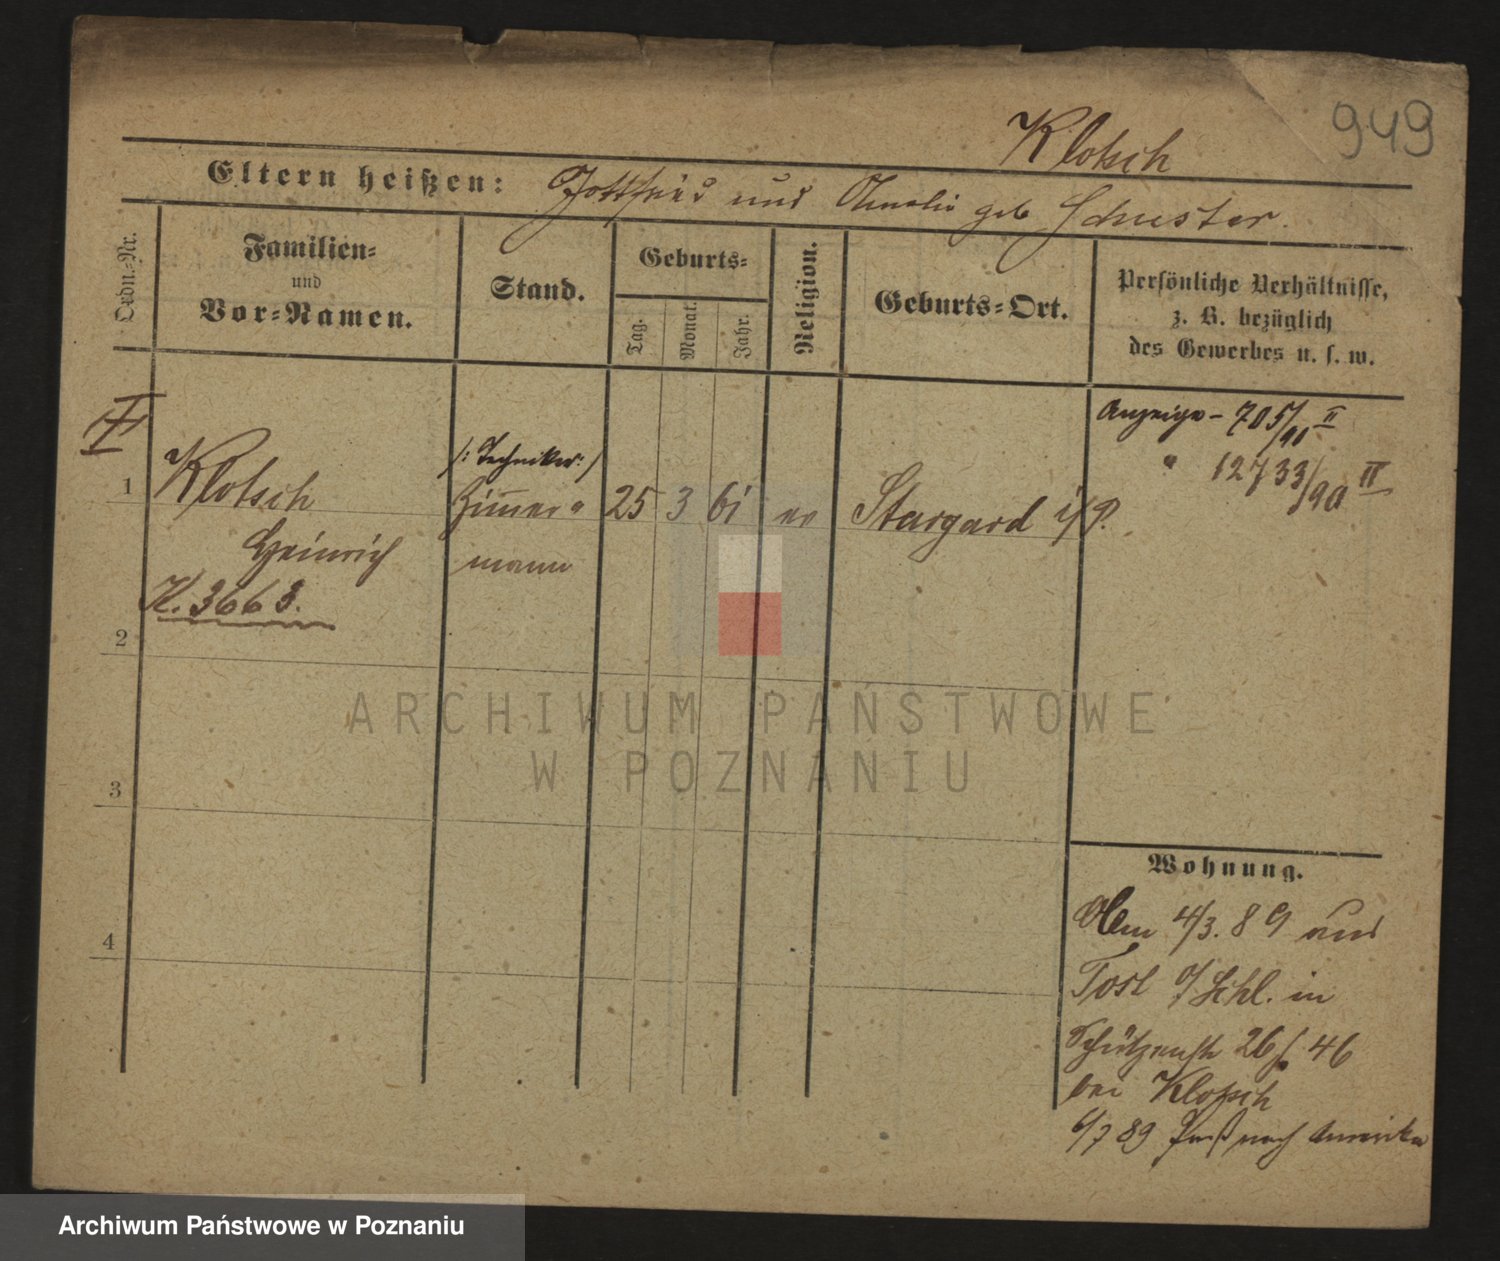 949
Klotsch
Eltern heißen: Gottfried und Amalie geb Schuster.
Ordn.-Nr.
Familien-
und
Vor-Namen.
Stand.
Geburts-
Tag.
Monat.
Jahr.
Religion.
Geburts-Ort.
Persönliche Verhältnisse,
z. B. bezüglich
des Gewerbes u. s. w.
Anzeige - 705/90 II
" 12733/90 II
1 Klotsch /: Techniker: / Zimmer- 25 3 61 ev Stargard i/P.
Heinrich mann
K. 3663.
2
3
4
Wohnung.
4/3. 89 aus
Tost O/Schl. in
Schützenstr 26 46
bei Klotsch
6/7 89 Paß nach Amerika
ARCHIWUM PAŃSTWOWE
W POZNANIU
Archiwum Państwowe w Poznaniu